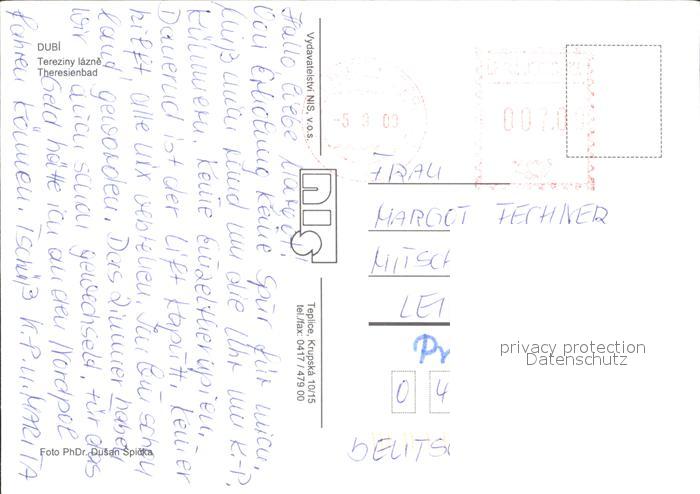 DUBÍ
Tereziny lázně
Theresienbad
Hallo liebe Margot!
Von Erholung keine Spur für mich.
Muß mich rund um die Uhr um K.-P.
kümmern. Keine Einzeltherapien.
Dauernd ist der Lift kaputt, keiner
hilft, alle nix verstehen. Ich bin schon
krank geworden. Das Zimmer haben
wir auch schon gewechselt. Für das
Geld hätte ich an den Nordpol
fahren können. Tschüß K.-P. u. MARITA
Foto PhDr. Dušan Špička
Vydavatelství NIS, v.o.s.
nis
Teplice, Krupská 10/15
tel./fax: 0417 / 479 00
-5.9.00
007.0
FRAU
MARGOT FECHNER
MITSCH
LEI
Pr
0 4
DELITS
privacy protection
Datenschutz